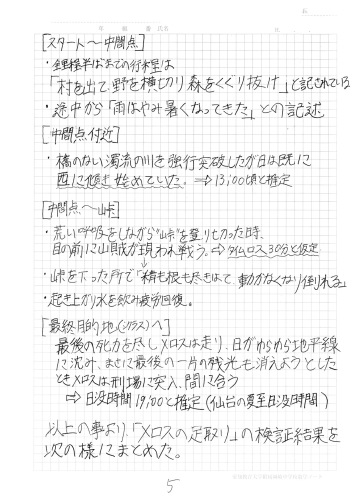 年 組 番 氏名
[スタート〜中間点]
・全里程半ばまでの行程は
「村を出て、野を横切り森をくぐり抜け」と記されている
・途中から「雨はやみ暑くなってきた」との記述
[中間点付近]
・橋のない濁流の川を強行突破したが日は既に
西に傾き始めていた。⇒13:00頃と推定
[中間点〜峠]
・荒い呼吸をしながら"峠"を登りもかった時、
目の前に山賊が現われ戦う。⇒タイムロス30分と仮定
・峠を下った所で「精も根も尽きはて、動かなくなり倒れる」
・起き上がり水を飲み疲労回復。
[最終目的地(シラクス)へ]
最後の死力を尽しメロスは走り、日がゆらゆら地平線
に沈み、まさに最後の一片の残光も消えようとした
ときメロスは刑場に突入、間に合う
⇒日没時間19:00と推定(仙台の夏至日没時間)
以上の事より、「メロスの足取り」の検証結果を
次の様にまとめた。
5